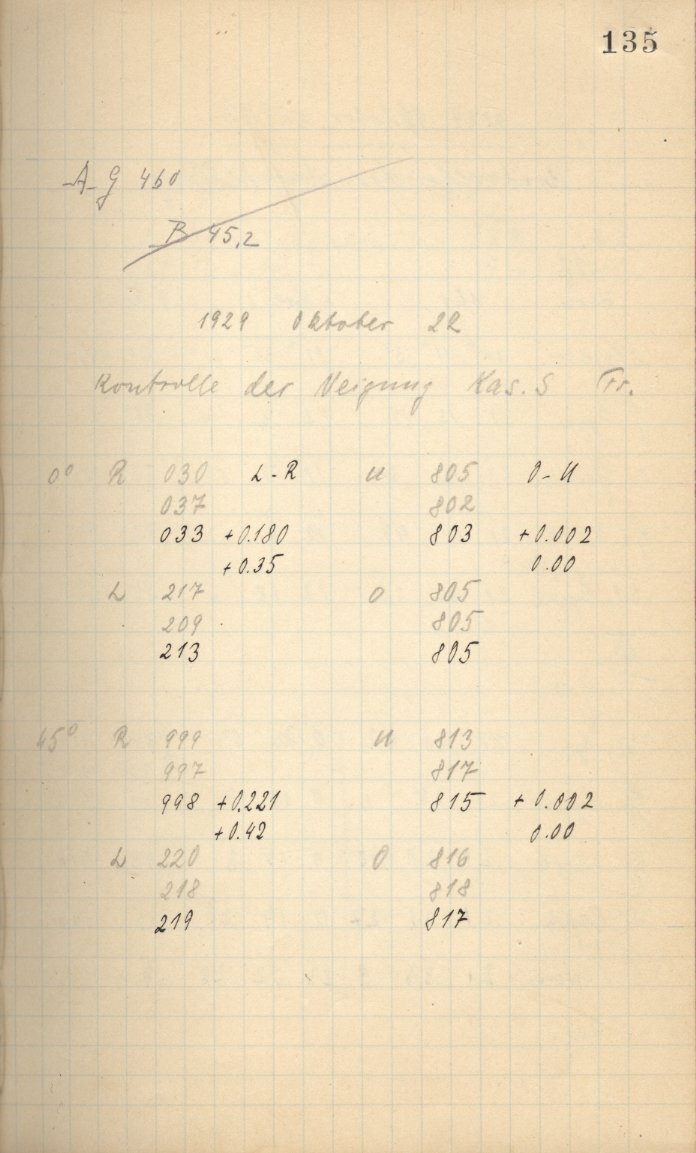 135
A G 460
B 45,2
1929 Oktober 22
Kontrolle der Neigung Kas. S Fr.
0° R 030 L-R U 805 O-U
037 802
033 +0.180 803 +0.002
+0.35 0.00
L 217 O 805
209 805
213 805
45° R 999 U 813
997 817
998 +0.221 815 +0.002
+0.42 0.00
L 220 O 816
218 818
219 817